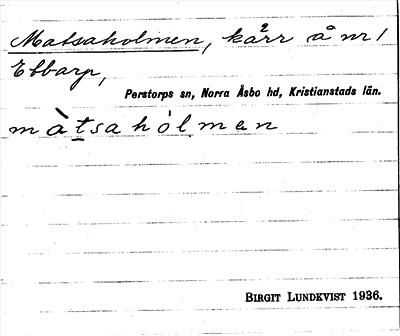 Matsaholmen, kärr å nr 1
Ebbarp,
Perstorps sn, Norra Åsbo hd, Kristianstads län.
màtsahòlmen
BIRGIT LUNDKVIST 1936.